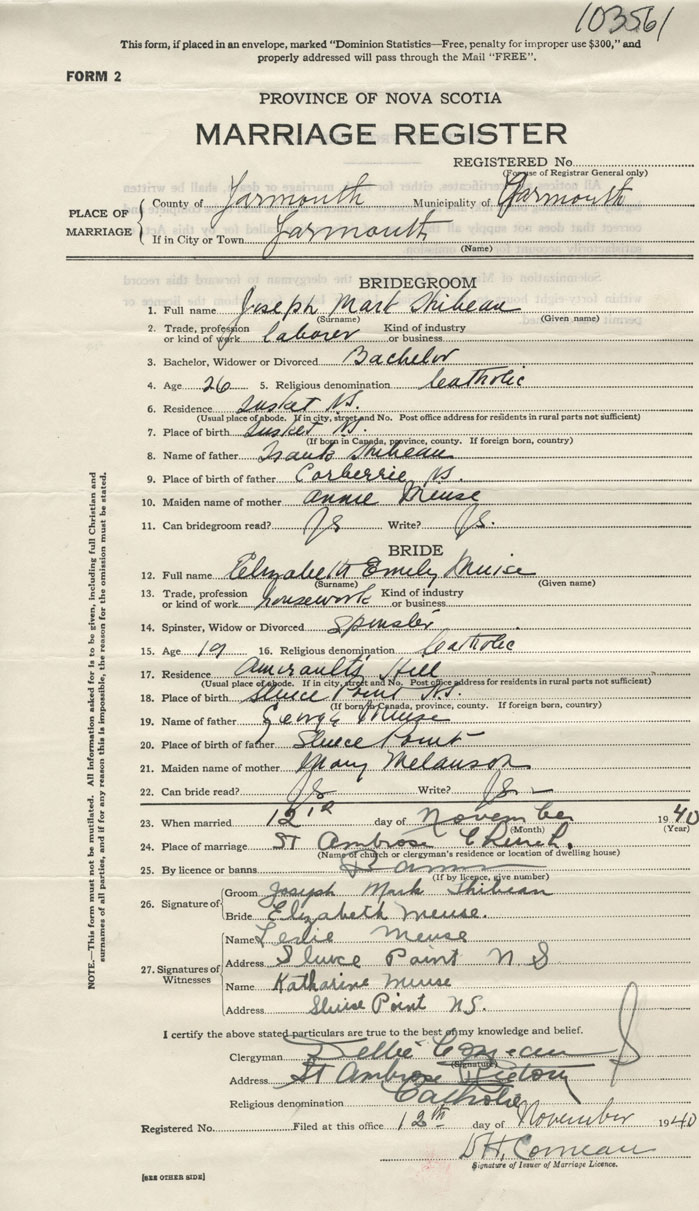 103561
This form, if placed in an envelope, marked "Dominion Statistics—Free, penalty for improper use $300," and
properly addressed will pass through the Mail "FREE".
FORM 2
PROVINCE OF NOVA SCOTIA
MARRIAGE REGISTER
REGISTERED No.
(For use of Registrar General only)
PLACE OF MARRIAGE
County of Yarmouth Municipality of Yarmouth
If in City or Town Yarmouth
(Name)
BRIDEGROOM
1. Full name Joseph Mark Thibeau
(Surname) (Given name)
2. Trade, profession or kind of work laborer Kind of industry or business
3. Bachelor, Widower or Divorced Bachelor
4. Age 26 5. Religious denomination Catholic
6. Residence Tusket N.S.
(Usual place of abode. If in city, street and No. Post office address for residents in rural parts not sufficient)
7. Place of birth Tusket N.S.
(If born in Canada, province, county. If foreign born, country)
8. Name of father Frank Thibeau
9. Place of birth of father Corberrie N.S.
10. Maiden name of mother Annie Meuse
11. Can bridegroom read? Yes Write? Yes.
BRIDE
12. Full name Elizabeth Emily Muise
(Surname) (Given name)
13. Trade, profession or kind of work housework Kind of industry or business
14. Spinster, Widow or Divorced Spinster
15. Age 19 16. Religious denomination Catholic
17. Residence Amiraults Hill
(Usual place of abode. If in city, street and No. Post office address for residents in rural parts not sufficient)
18. Place of birth Sluice Point N.S.
(If born in Canada, province, county. If foreign born, country)
19. Name of father George Meuse
20. Place of birth of father Sluice Point
21. Maiden name of mother Mary Melanson
22. Can bride read? Yes Write? Yes —
23. When married 12th day of November 1940
(Month) (Year)
24. Place of marriage St Ambrose Church.
(Name of church or clergyman's residence or location of dwelling house)
25. By licence or banns Banns
(If by licence, give number)
26. Signature of
Groom Joseph Mark Thibeau
Bride Elizabeth Meuse.
27. Signatures of Witnesses
Name Leslie Meuse
Address Sluice Point N S
Name Katharine Meuse
Address Sluise Point N.S.
I certify the above stated particulars are true to the best of my knowledge and belief.
Clergyman Comeau
(Signature)
Address St Ambrose Rectory
Religious denomination Catholic
Registered No. Filed at this office 12th day of November 1940
Comeau
Signature of Issuer of Marriage Licence.
[SEE OTHER SIDE]
NOTE.—This form must not be mutilated. All information asked for is to be given, including full Christian and
surnames of all parties, and if for any reason this is impossible, the reason for the omission must be stated.